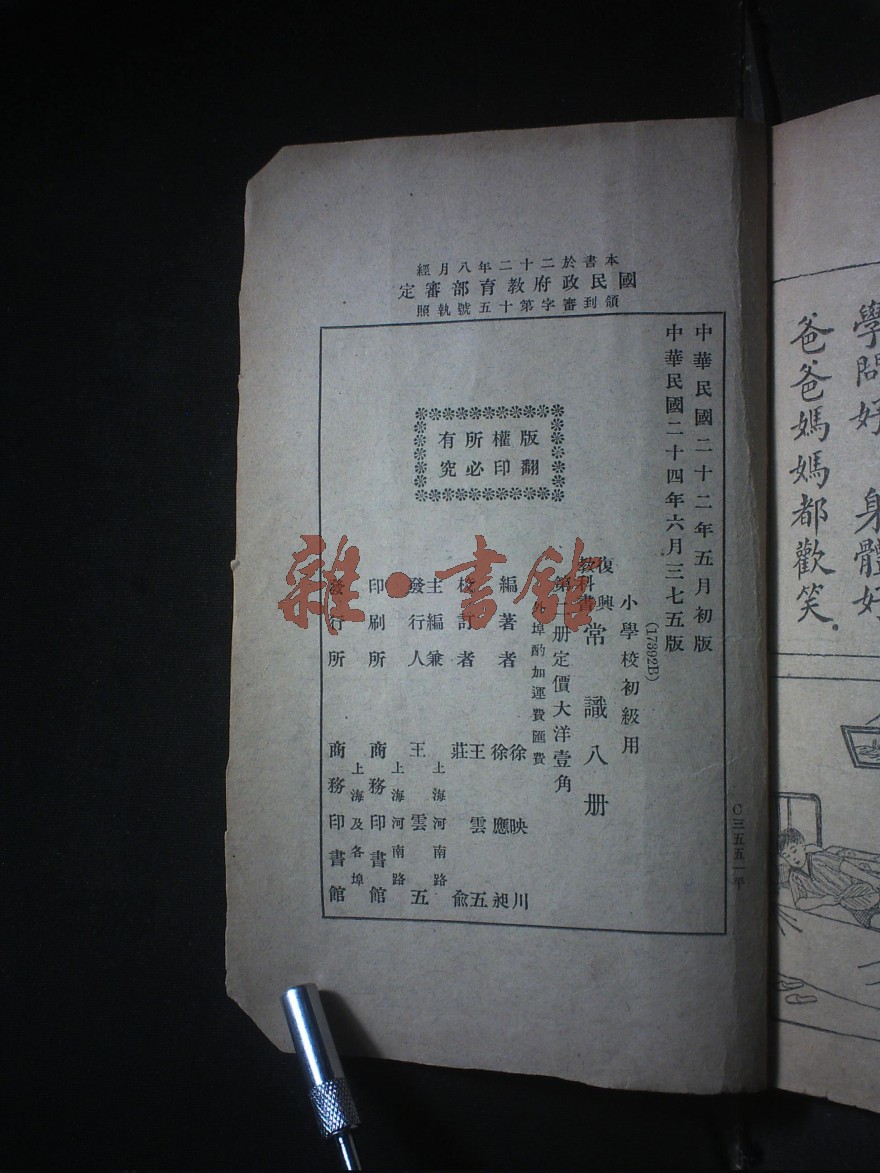 本書於二十二年八月經
國民政府教育部審定
領到審字第十五號執照
中華民國二十二年五月初版
中華民國二十四年六月三七五版
(17392B)
小學校初級用
復興
教科書
常識八册
第一册定價大洋壹角
外埠酌加運費匯費
版權所有
翻印必究
編著者
徐映川
徐應昶
王雲五
校訂者
莊俞
主編兼
發行人
上海河南路
王雲五
印刷所
上海河南路
商務印書館
發行所
上海及各埠
商務印書館
C三五五一平
學問好 身體好
爸爸媽媽都歡笑。
雜·書館